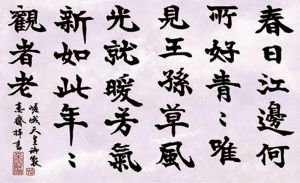 春日江邊何
所好青〻唯
見王孫草風
光就暖芳氣
新如此年〻
觀者老
嵯峨天皇御製